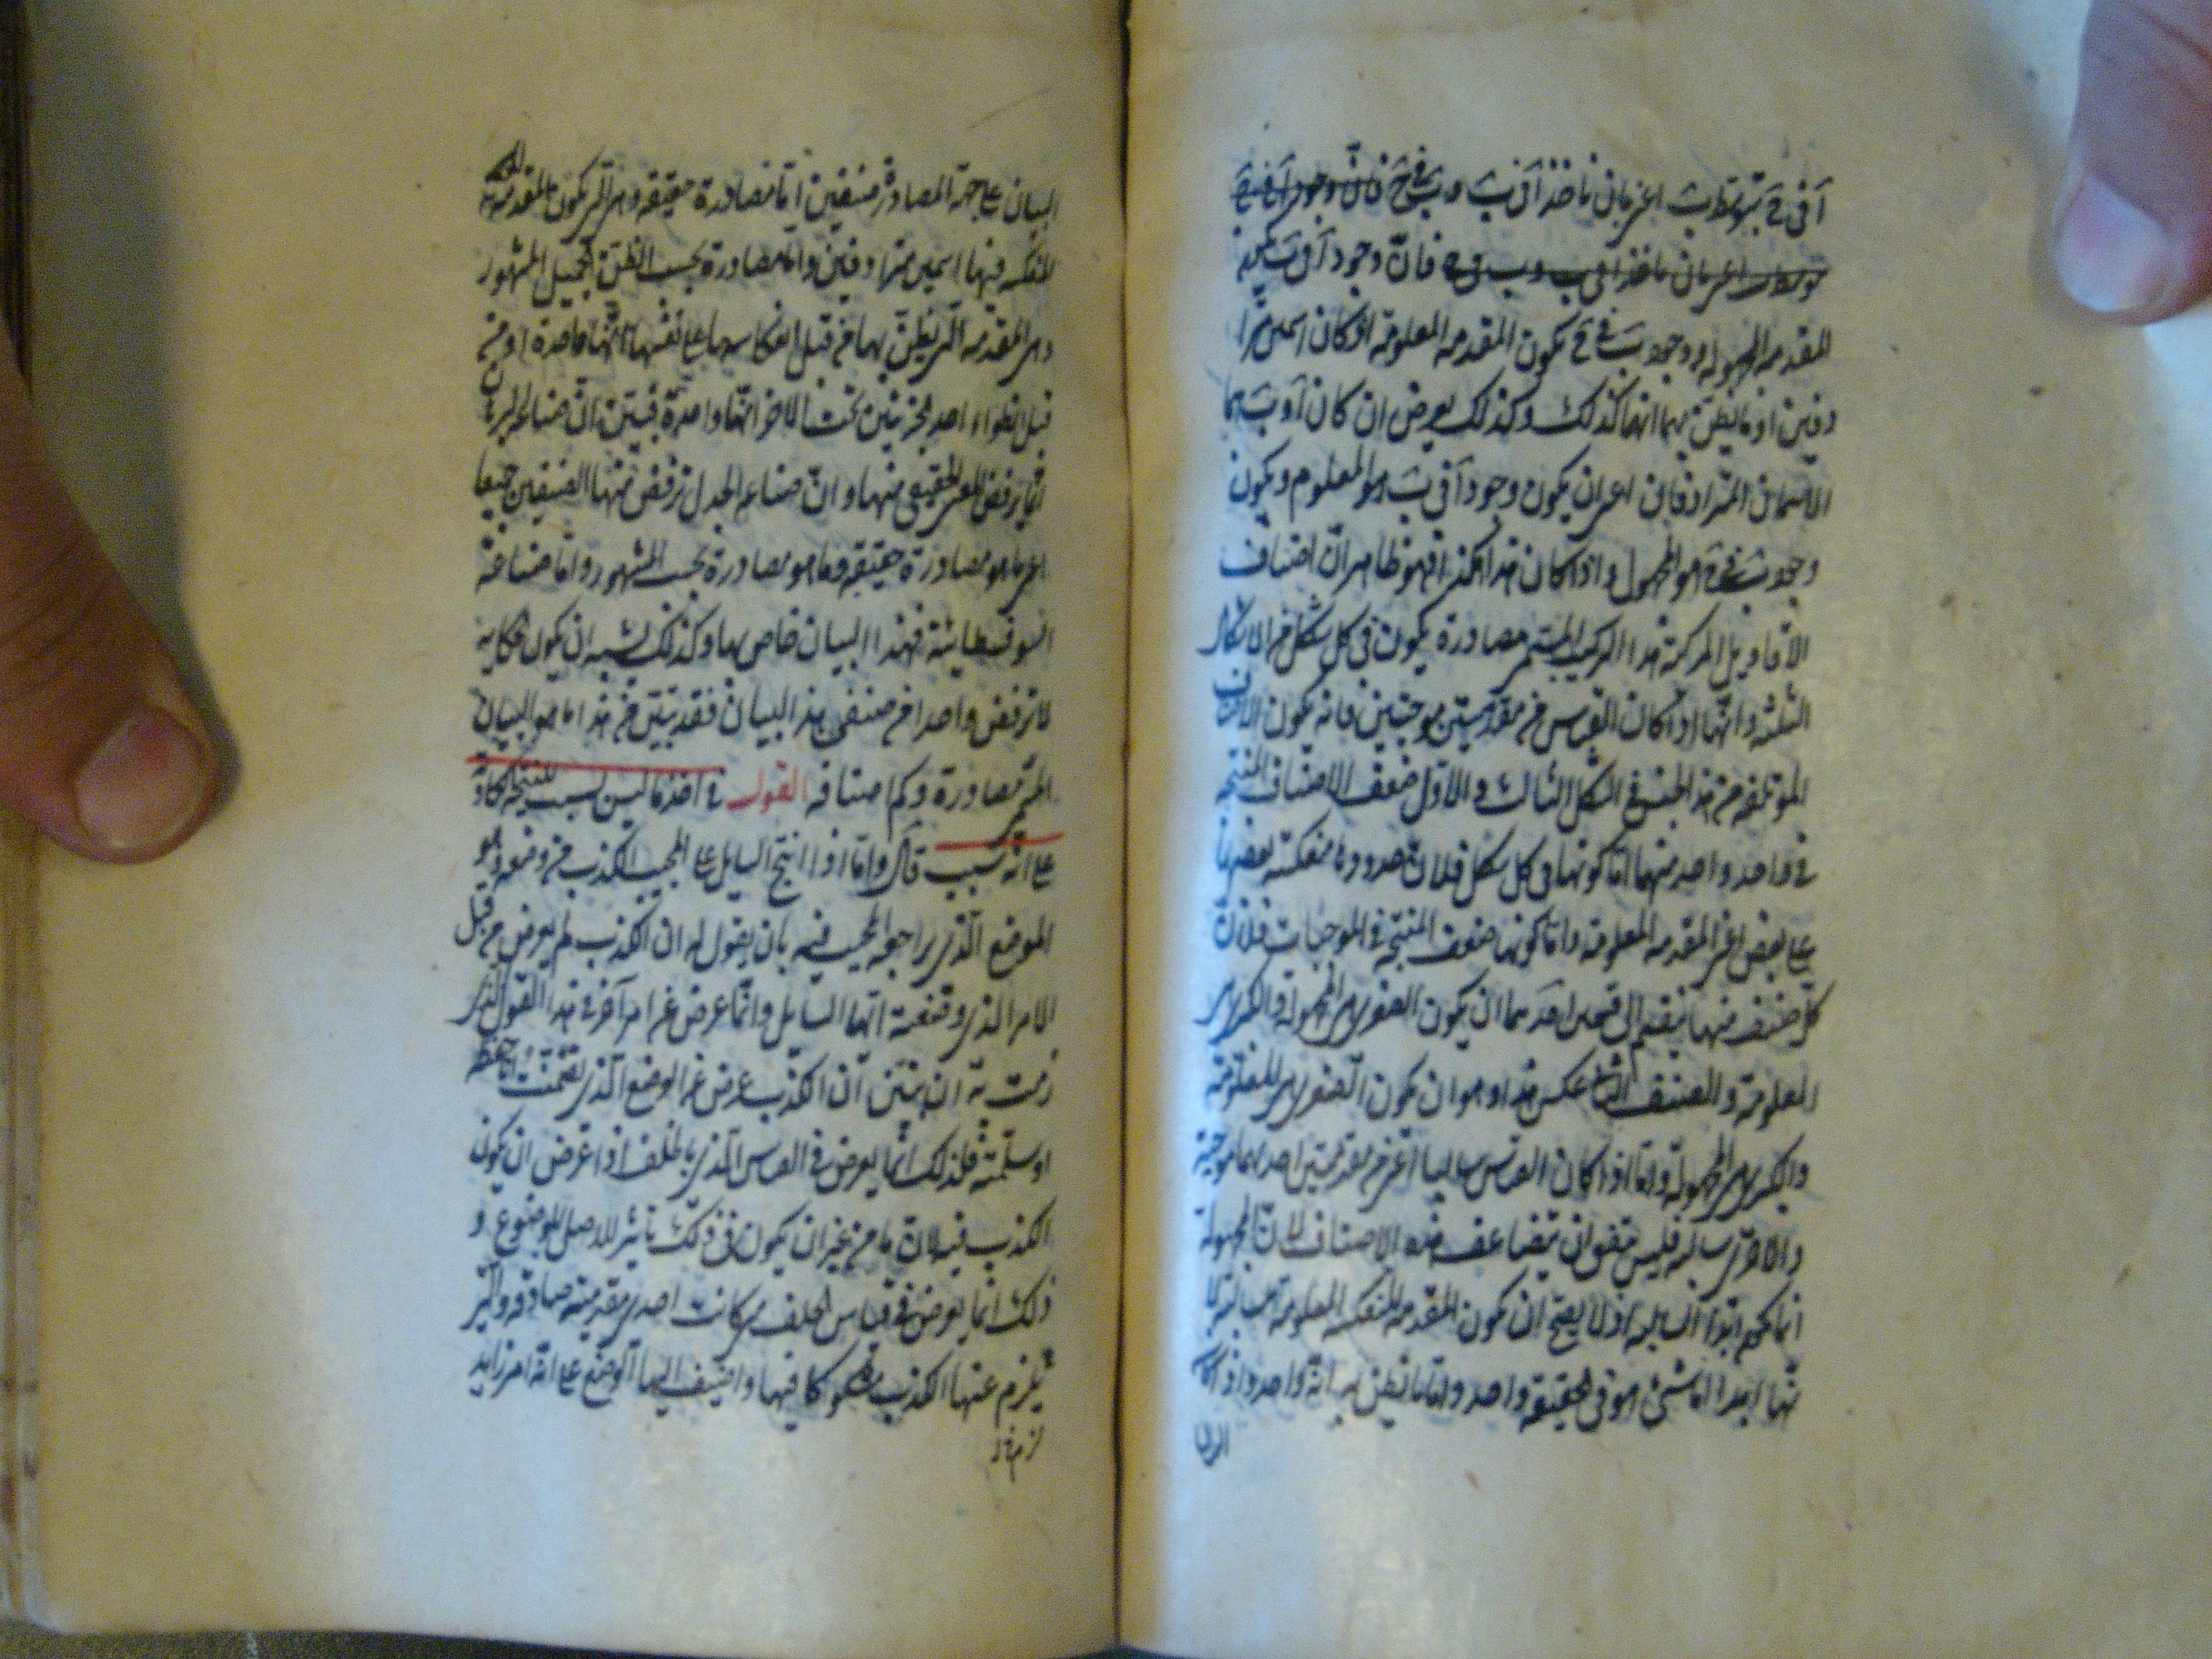 آ في ج بتوسط ب اعني بان ناخذ آ في ب و ب في ج فان وجود آ في ج
فان وجود آ في ب
المقدمة المجهولة ووجود ب في ج يكون المقدمة المعلومة اذ كان اسمين مترا
دفين او ما يظن بهما انهما كذلك وكذلك يعرض ان كان آ و ب هما
الاسمان المترادفان اعني ان يكون وجود آ في ب هو المعلوم ويكون
وجود ب في ج هو المجهول واذا كان هذا هكذا فهو ظاهر ان اصناف
الاقاويل المركبة هذا التركيب المستمر مصادرة يكون في كل شكل من الاشكال
الثلثة وانها اذا كان القياس من مقدمتين موجبتين فانه يكون الاصناف
المؤتلفة من هذا الجنس في الشكل الثالث والاول ضعف الاصناف المنتجة
في واحد واحد منهما اما كونها في كل شكل فلان حدودها منعكسة بعضها
على بعض اعني المقدمة المعلومة واما كونها ضعف المنتجة في الموجبات فلان
كل صنف منها ينقسم الى قسمين احدهما ان يكون الصغرى هي المجهولة والكبرى هي
المعلومة والصنف الثاني عكس هذا وهو ان يكون الصغرى هي المعلومة
والكبرى هي المجهولة واما اذا كان القياس سالبا اعني من مقدمتين احديهما موجبة
والاخرى سالبة فليس يتفق ان يتضاعف هذه الاصناف لان المجهولة
انما يكون ابدا السالبة اذ لا يصح ان يكون المقدمة المنعكسة المعلومة سالبة لا
نها ابدا اما شئ هو في الحقيقة واحد واما ما يظن به انه واحد واذا كان
البيان على جهة المصادرة صنفين اما مصادرة حقيقة وهي التي يكون المقدمة
المنعكسة فيها اسمين مترادفين واما مصادرة بحسب الظن الجميل المشهور
وهي المقدمة التي يظن بها من قبل انعكاسها على نفسها انها واحدة او من
قبل انطواء احد الجزئين تحت الاخر انها واحدة فبين ان صناعة البرهان
انما ترفض المعنى الحقيقي منها وان صناعة الجدل ترفض منها الصنفين جميعا
اعني ما هو مصادرة حقيقة وما هو مصادرة بحسب المشهور واما صناعة
السوفسطائية فهذا البيان خاص بها وكذلك يشبه ان يكون
لا ترفض واحدا من صنفي هذا البيان فقد تبين من هذا ما هو البيان
المسمى مصادرة وكم اصنافه القول في اخذ ما ليس بسبب للنتيجة
على انه سبب قال واما اذا انتج السايل على المجيب الكذب من وضعه وهو
الموضع الذي يراجع المجيب فيه بان يقول له ان الكذب لم يعرض من قبل
الامر الذي وضعته ايها السايل وانما عرض عن امر آخر في هذا القول الذي
رمت به ان تبين ان الكذب عرض عن الوضع الذي
او سلمته فذلك انما يعرض في القياس الذي بالخلف اذا عرض ان يكون
الكذب فيه لازما من غير ان يكون في ذلك تاثير للاصل الموضوع و
ذلك انما يعرض في قياس الخلف متى كانت احدى مقدمتيه صادقة والتي
يلزم عنها الكذب مشكوكا فيها واضيف اليها الوضع على انه امر زايد